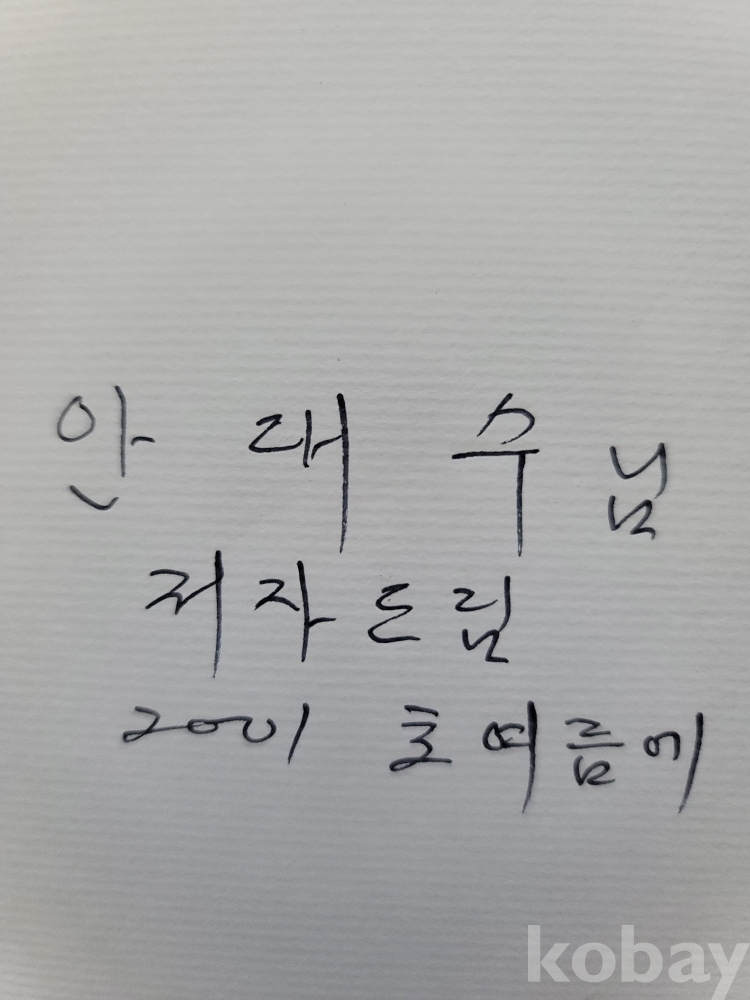 안 대 수 님
저자 드림
2001 초여름에
kobay